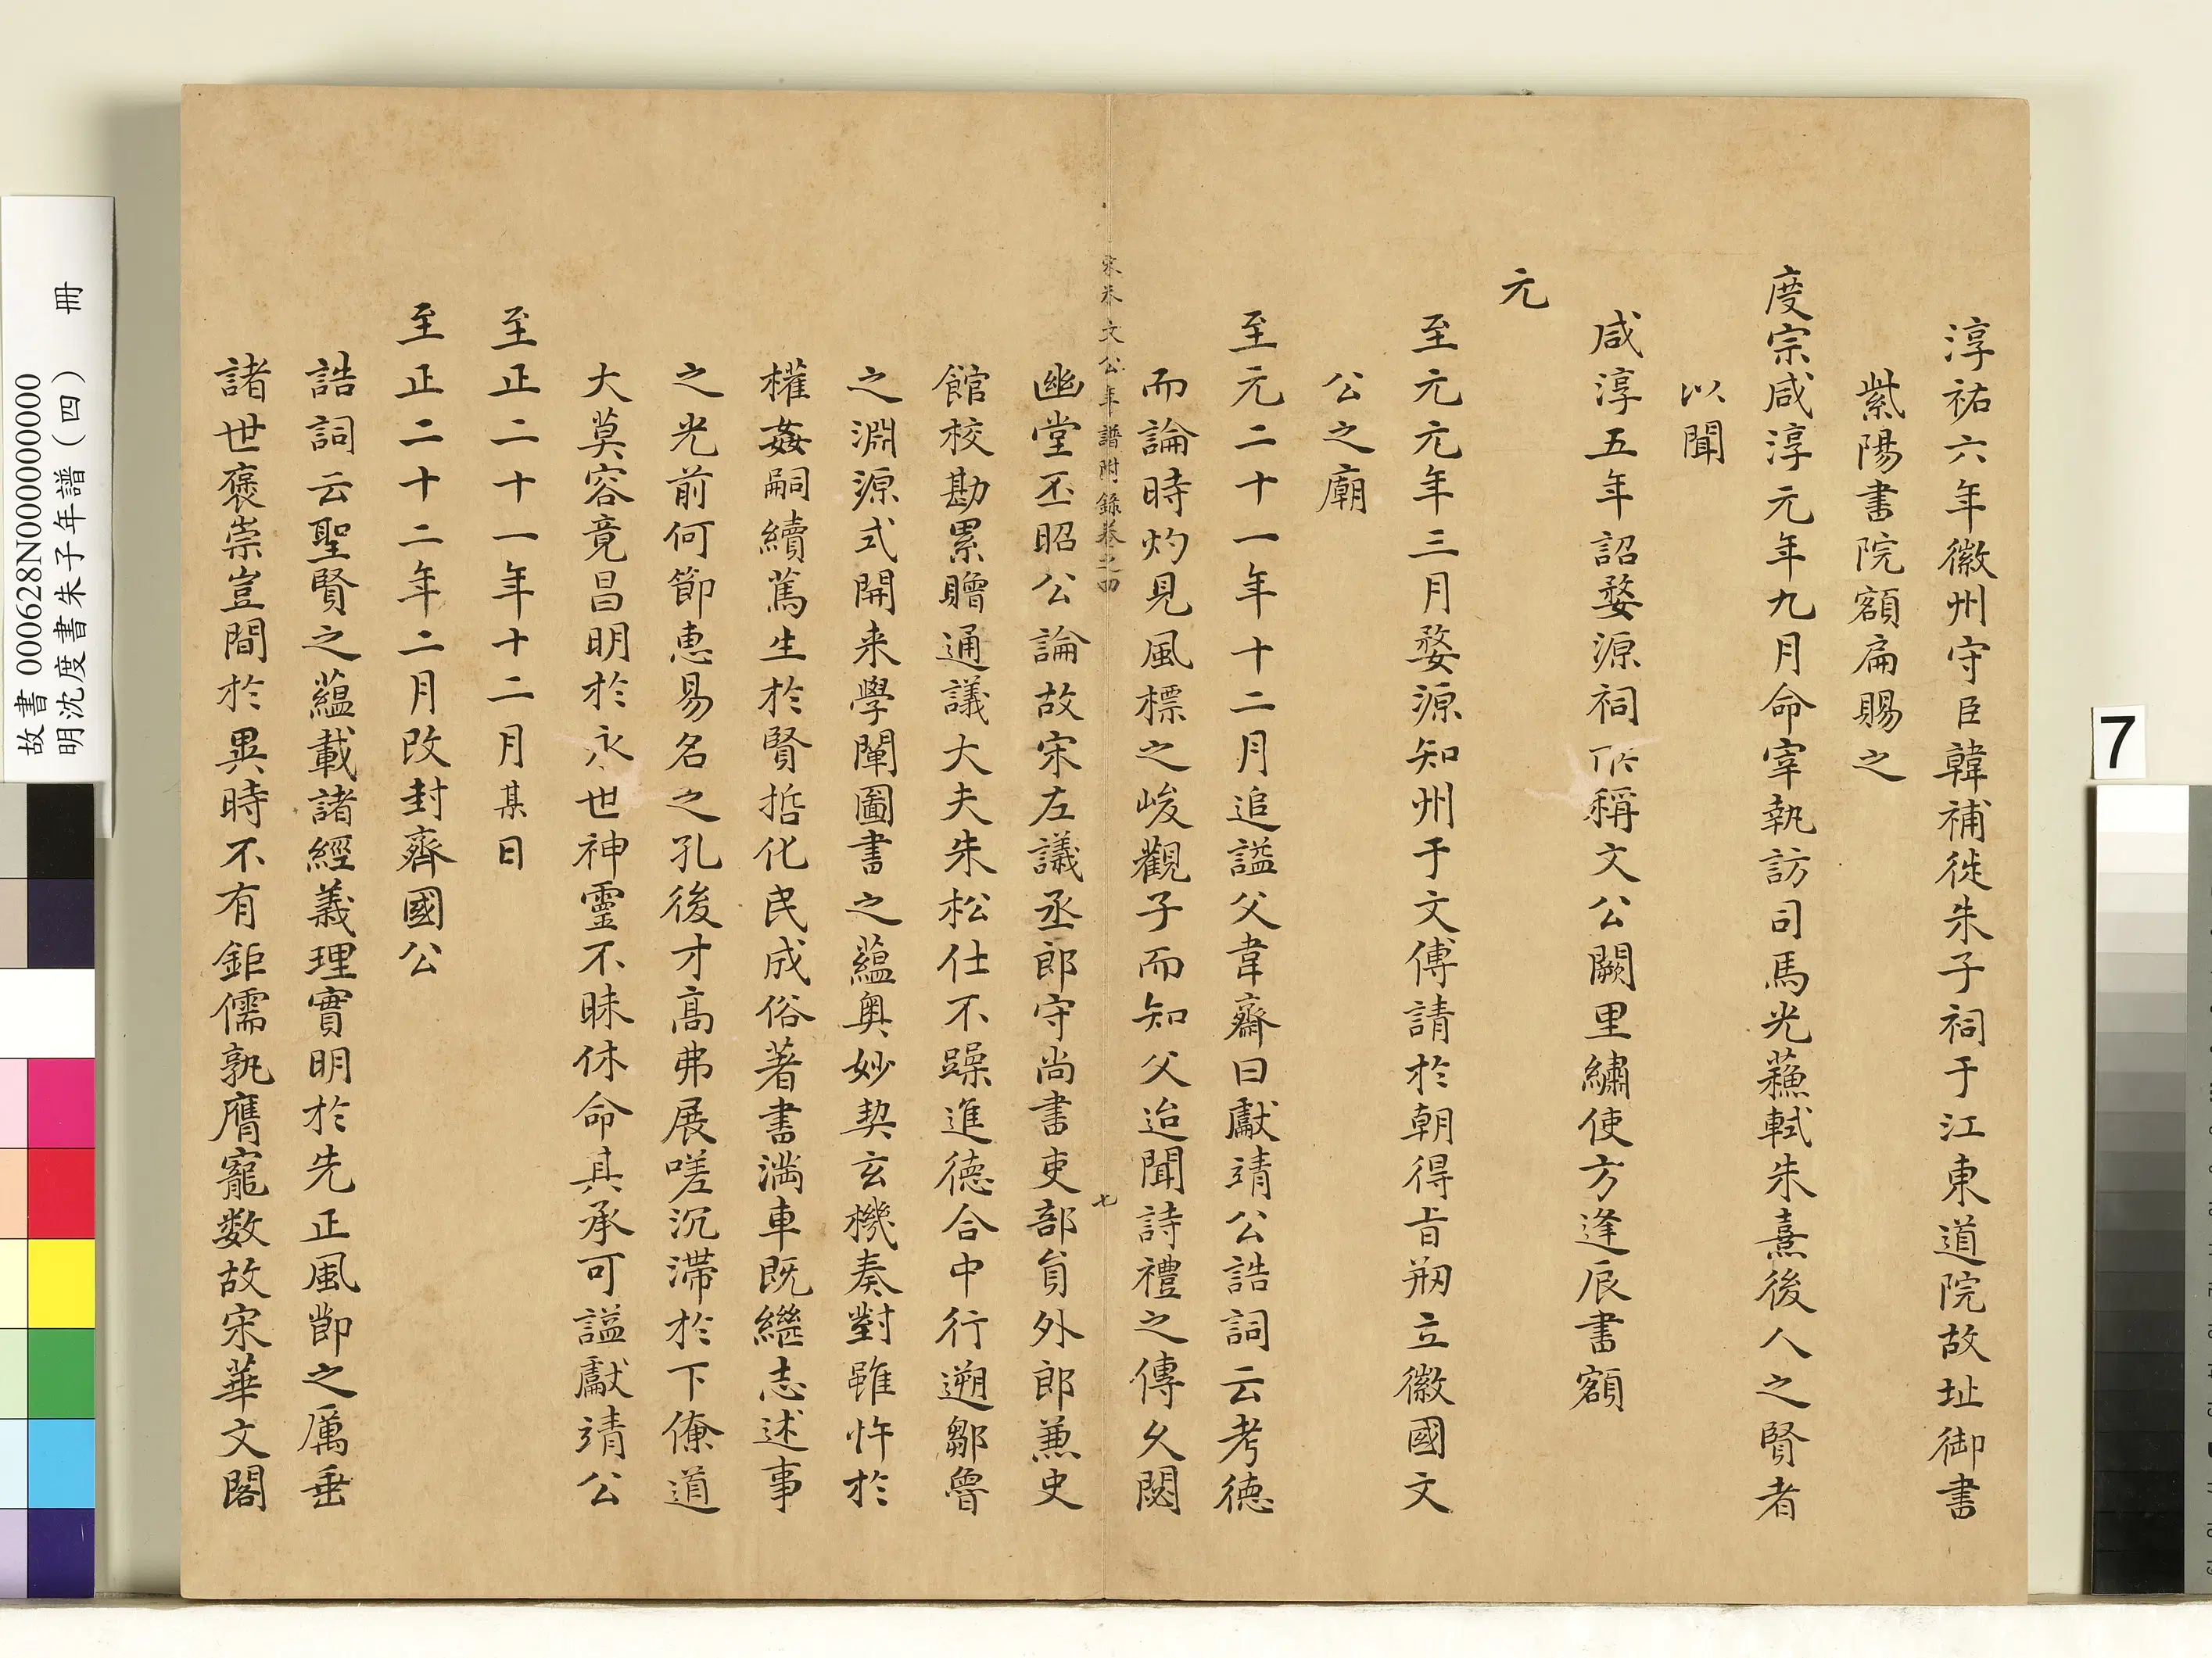 淳祐六年徽州守臣韓補徙朱子祠于江東道院故址御書
紫陽書院額扁賜之
度宗咸淳元年九月命宰執訪司馬光蘓軾朱熹後人之賢者
以聞
咸淳五年詔婺源祠所稱文公闕里繡使方逢辰書額
元
至元元年三月婺源知州于文傳請於朝得旨剏立徽國文
公之廟
至元二十一年十二月追謚父韋齋曰獻靖公誥詞云考德
而論時灼見風標之峻觀子而知父迨聞詩禮之傳久閟
幽堂丕昭公論故宋左議丞郎守尚書吏部貟外郎兼史
館校勘累贈通議大夫朱松仕不躁進德合中行遡鄒魯
之淵源式開来學闡圖書之蘊奥妙契玄機奏對雖忤於
權姦嗣續篤生於賢哲化民成俗著書満車既繼志述事
之光前何節恵易名之孔後才高弗展嗟沉滯於下僚道
大莫容竟昌明於永世神靈不昧休命其承可謚獻靖公
至正二十一年十二月某日
至正二十二年二月改封齊國公
誥詞云聖賢之蘊載諸經義理實明於先正風節之厲垂
諸世褒崇豈間於異時不有鉅儒孰膺寵数故宋華文閣
宋朱文公年譜附錄卷之四
七
故書 000628N000000000
明沈度書朱子年譜(四) 冊
7